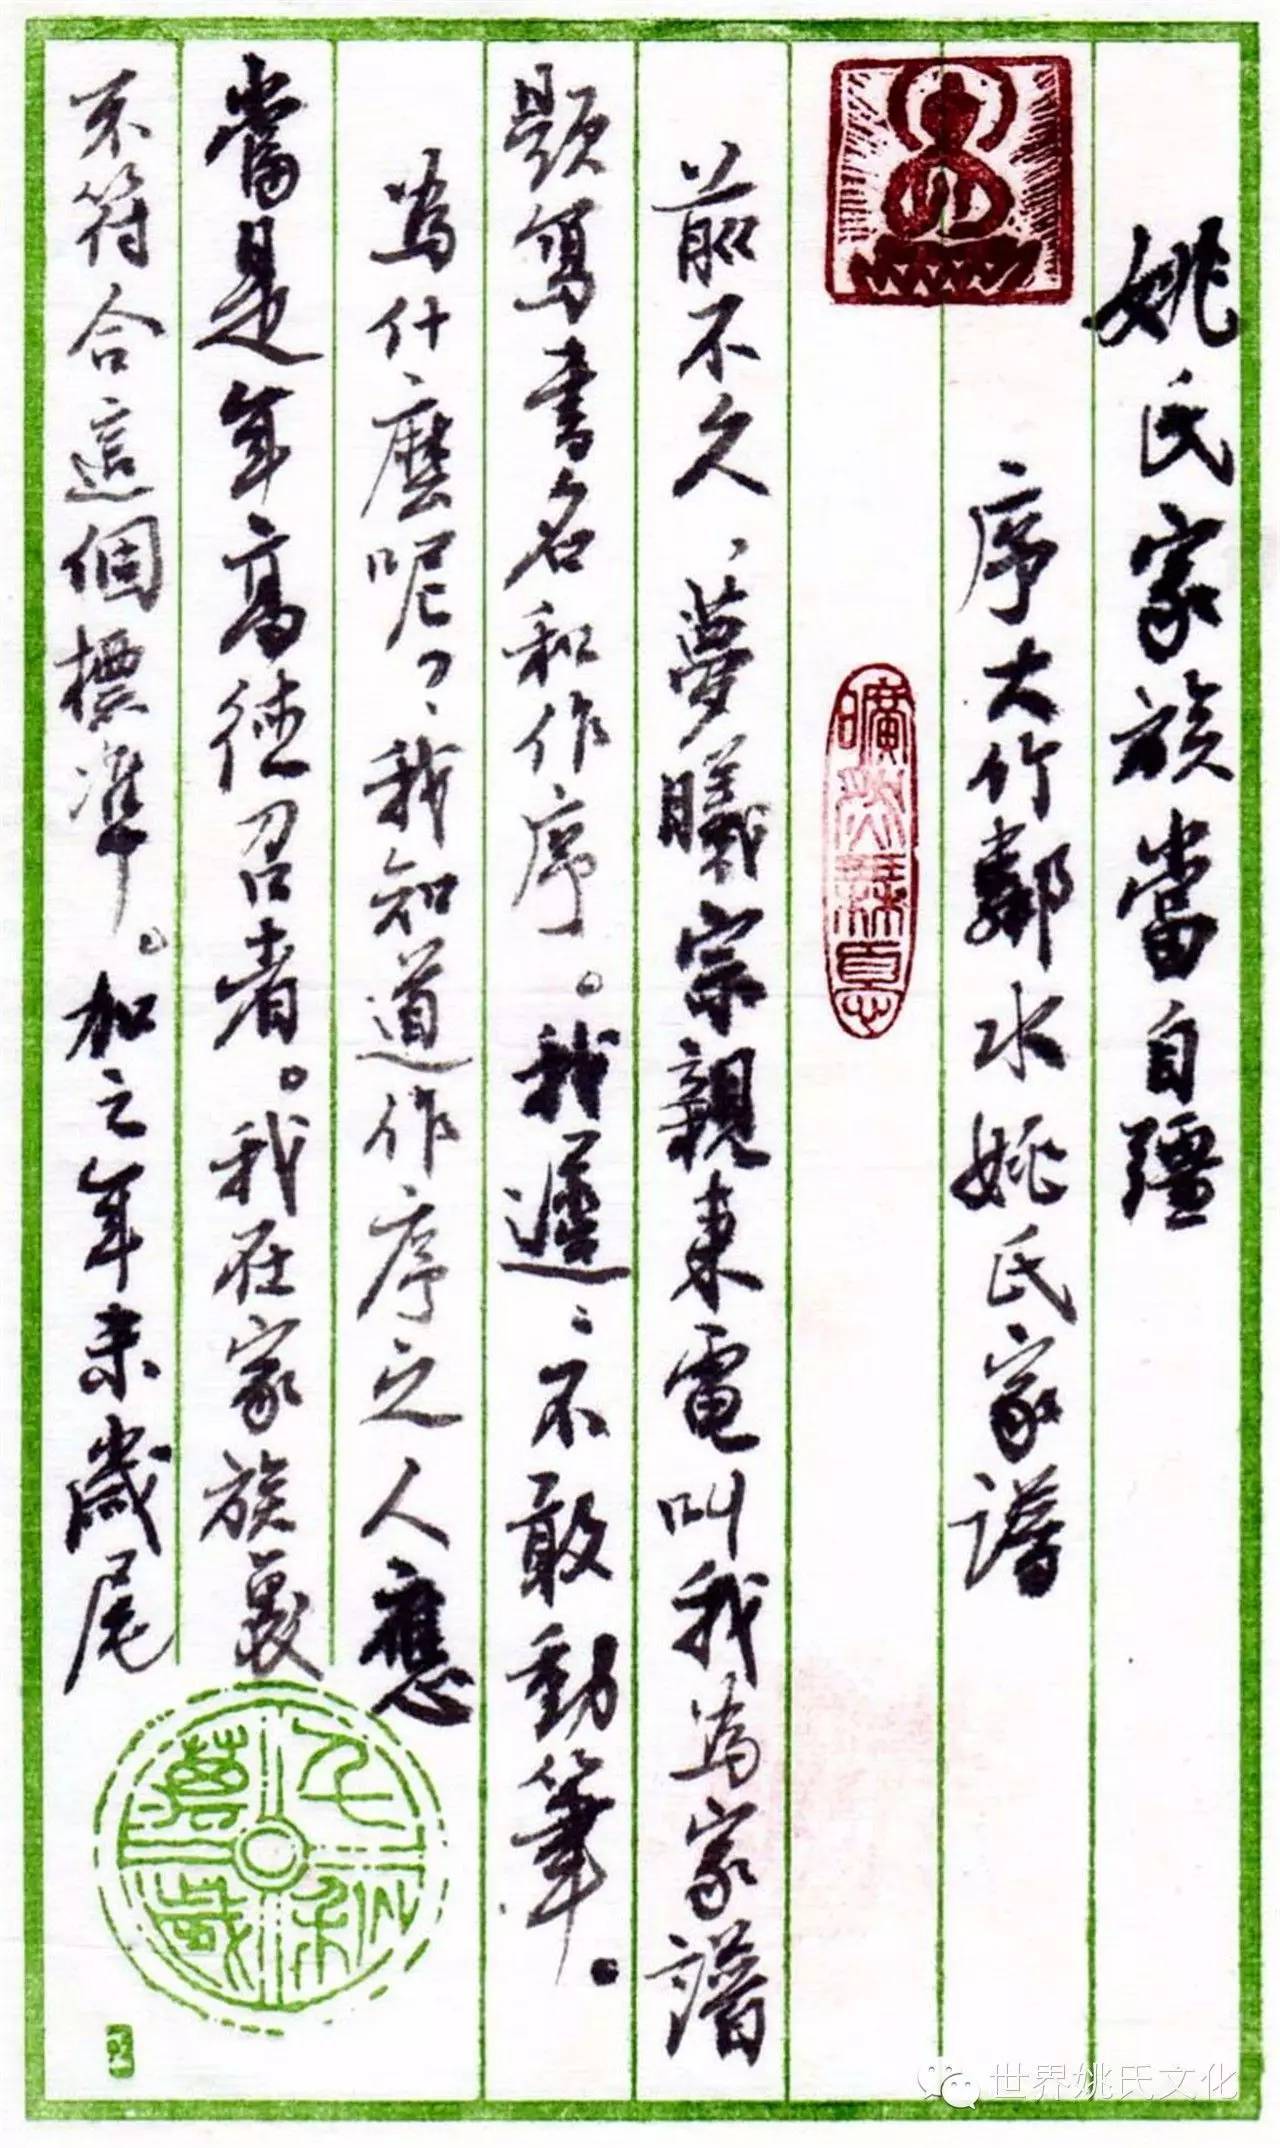 姚氏家族當自疆
序大竹鄰水姚氏家譜
前不久、夢曦宗親来電叫我為家譜
題寫書名和作序。我遲遲不敢動筆。
為什麼呢？我知道作序之人應
當是年高德召者。我在家族裏
不符合這個標準。加之年末歲尾
世界姚氏文化